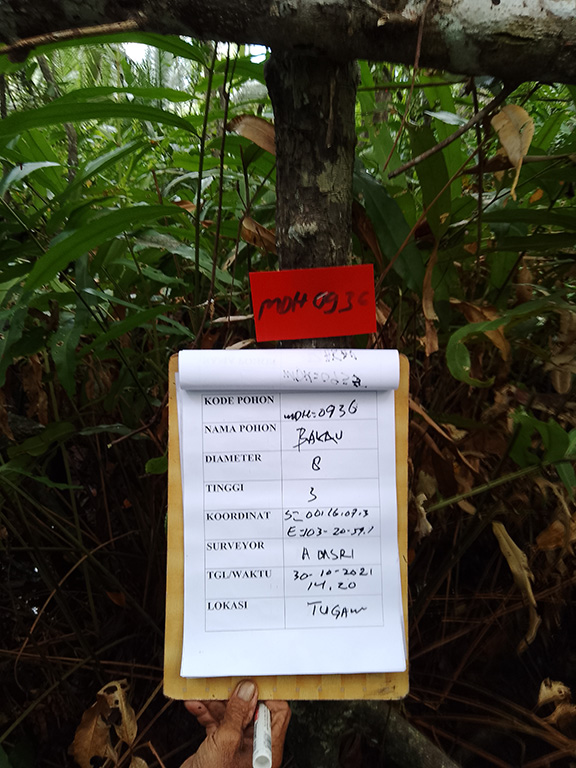 MDH 0936
KODE POHON MDH-0936
NAMA POHON BAKAU
DIAMETER 8
TINGGI 3
KOORDINAT S= 00116.07.3
E=103-20-59.1
SURVEYOR A DASRI
TGL/WAKTU 30-10-2021
14.20
LOKASI